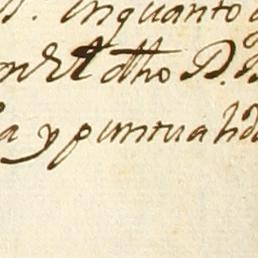 . Inquanto
en el dho D.
a y puntualid